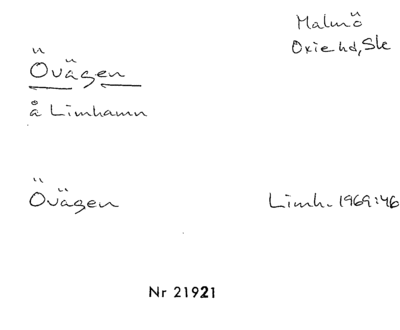 Malmö
Oxie hd, Sk
Övägen
å Limhamn
Övägen
Limh. 1969:46
Nr 21921